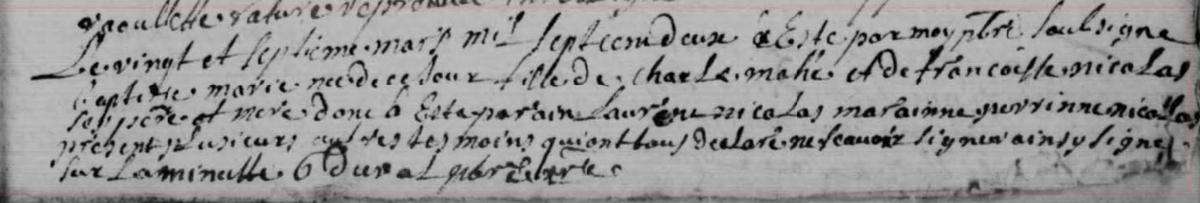 rature
Le vingt et septieme mars mil sept cem deux a Este par moy ptre soulsigne
baptisse marie nee de ce jour fille de charle mahé et de francoisse nicolas
ses pere et mere donc a Este parain laurene nicolas marainne perrinne nicollas
presents plusieurs autres tesmoins qui ont tous declaré ne scavoir signer ainsy signe
sur la minutte duval